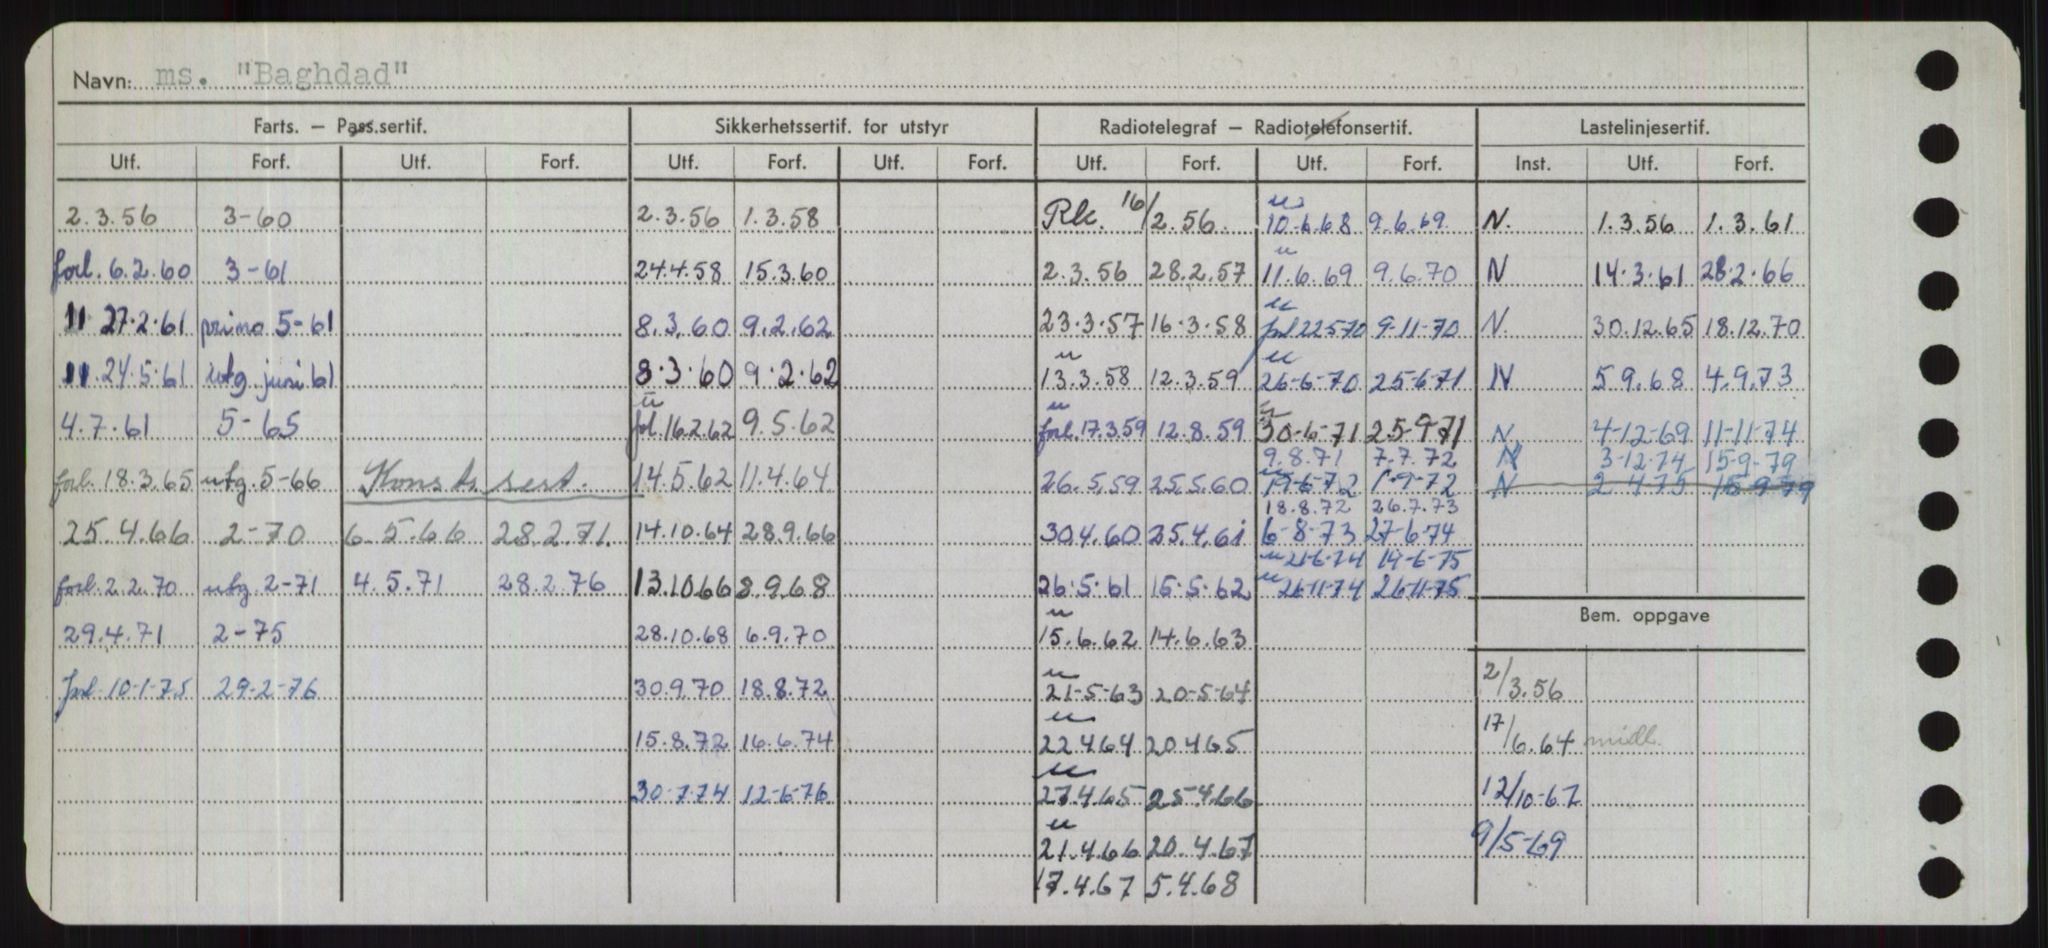 Navn: ms. "Baghdad"
Farts. — Pass.sertif. Sikkerhetssertif. for utstyr Radiotelegraf — Radiotelefonsertif. Lastelinjesertif.
Utf. Forf. Utf. Forf. Utf. Forf. Utf. Forf. Utf. Forf. Utf. Forf. Inst. Utf. Forf.
2.3.56 3-60 2.3.56 1.3.58 Rk. 16/2.56. u 10.6.68 9.6.69. N. 1.3.56 1.3.61
forl. 6.2.60 3-61 24.4.58 15.3.60 2.3.56 28.2.57 u 11.6.69 9.6.70 N 14.3.61 28.2.66
11 27.2.61 primo 5-61 8.3.60 9.2.62 23.3.57 16.3.58 u forl 22-5-70 9-11-70 N. 30.12.65 18.12.70
11.24.5.61 utg. juni 61 8.3.60 9.2.62 u 13.3.58 12.3.59 u 26-6-70 25-6-71 N 5 9.68 4.9.73
4.7.61 5-65 u fol. 16.2.62 9.5.62 u forl. 17.3.59 12.8.59 u 30-6-71 25-9-71 N 4-12-69 11-11-74
9.8.71 7.7.72 N 3-12-74 15-9-79
forl. 18.3.65 utg. 5-66 Konstr. sert. 14.5.62 11.4.64 26.5.59 25.5.60 u 19-6-72 1-9-72 N 2 4 75 15-9-79
18.8.72 26.7.73
25.4.66 2-70 6.5.66 28.2.71. 14.10.64 28.9.66 30.4.60 25.4.61 6-8-73 27-6-74
u 21-6-74 19-6-75
forl. 2.2.70 utg. 2-71 4.5.71 28.2.76 13.10.66 8.9.68 26.5.61 15.5.62 u 26-11-74 26-11-75
Bem. oppgave
29.4.71 2-75 28.10.68 6.9.70 u 15.6.62 14.6.63
forl. 10-1-75 29-2-76 30.9.70 18.8.72 u 21-5-63 20-5-64 2/3.56
15.8.72 16.6.74 u 22.4.64 20.4.65 17/6.64 midl.
30-7-74 12-6-76 u 27.4.65 25.4.66 12/10-67
u 21.4.66 20.4.67 9/5-69
17.4.67 5.4.68